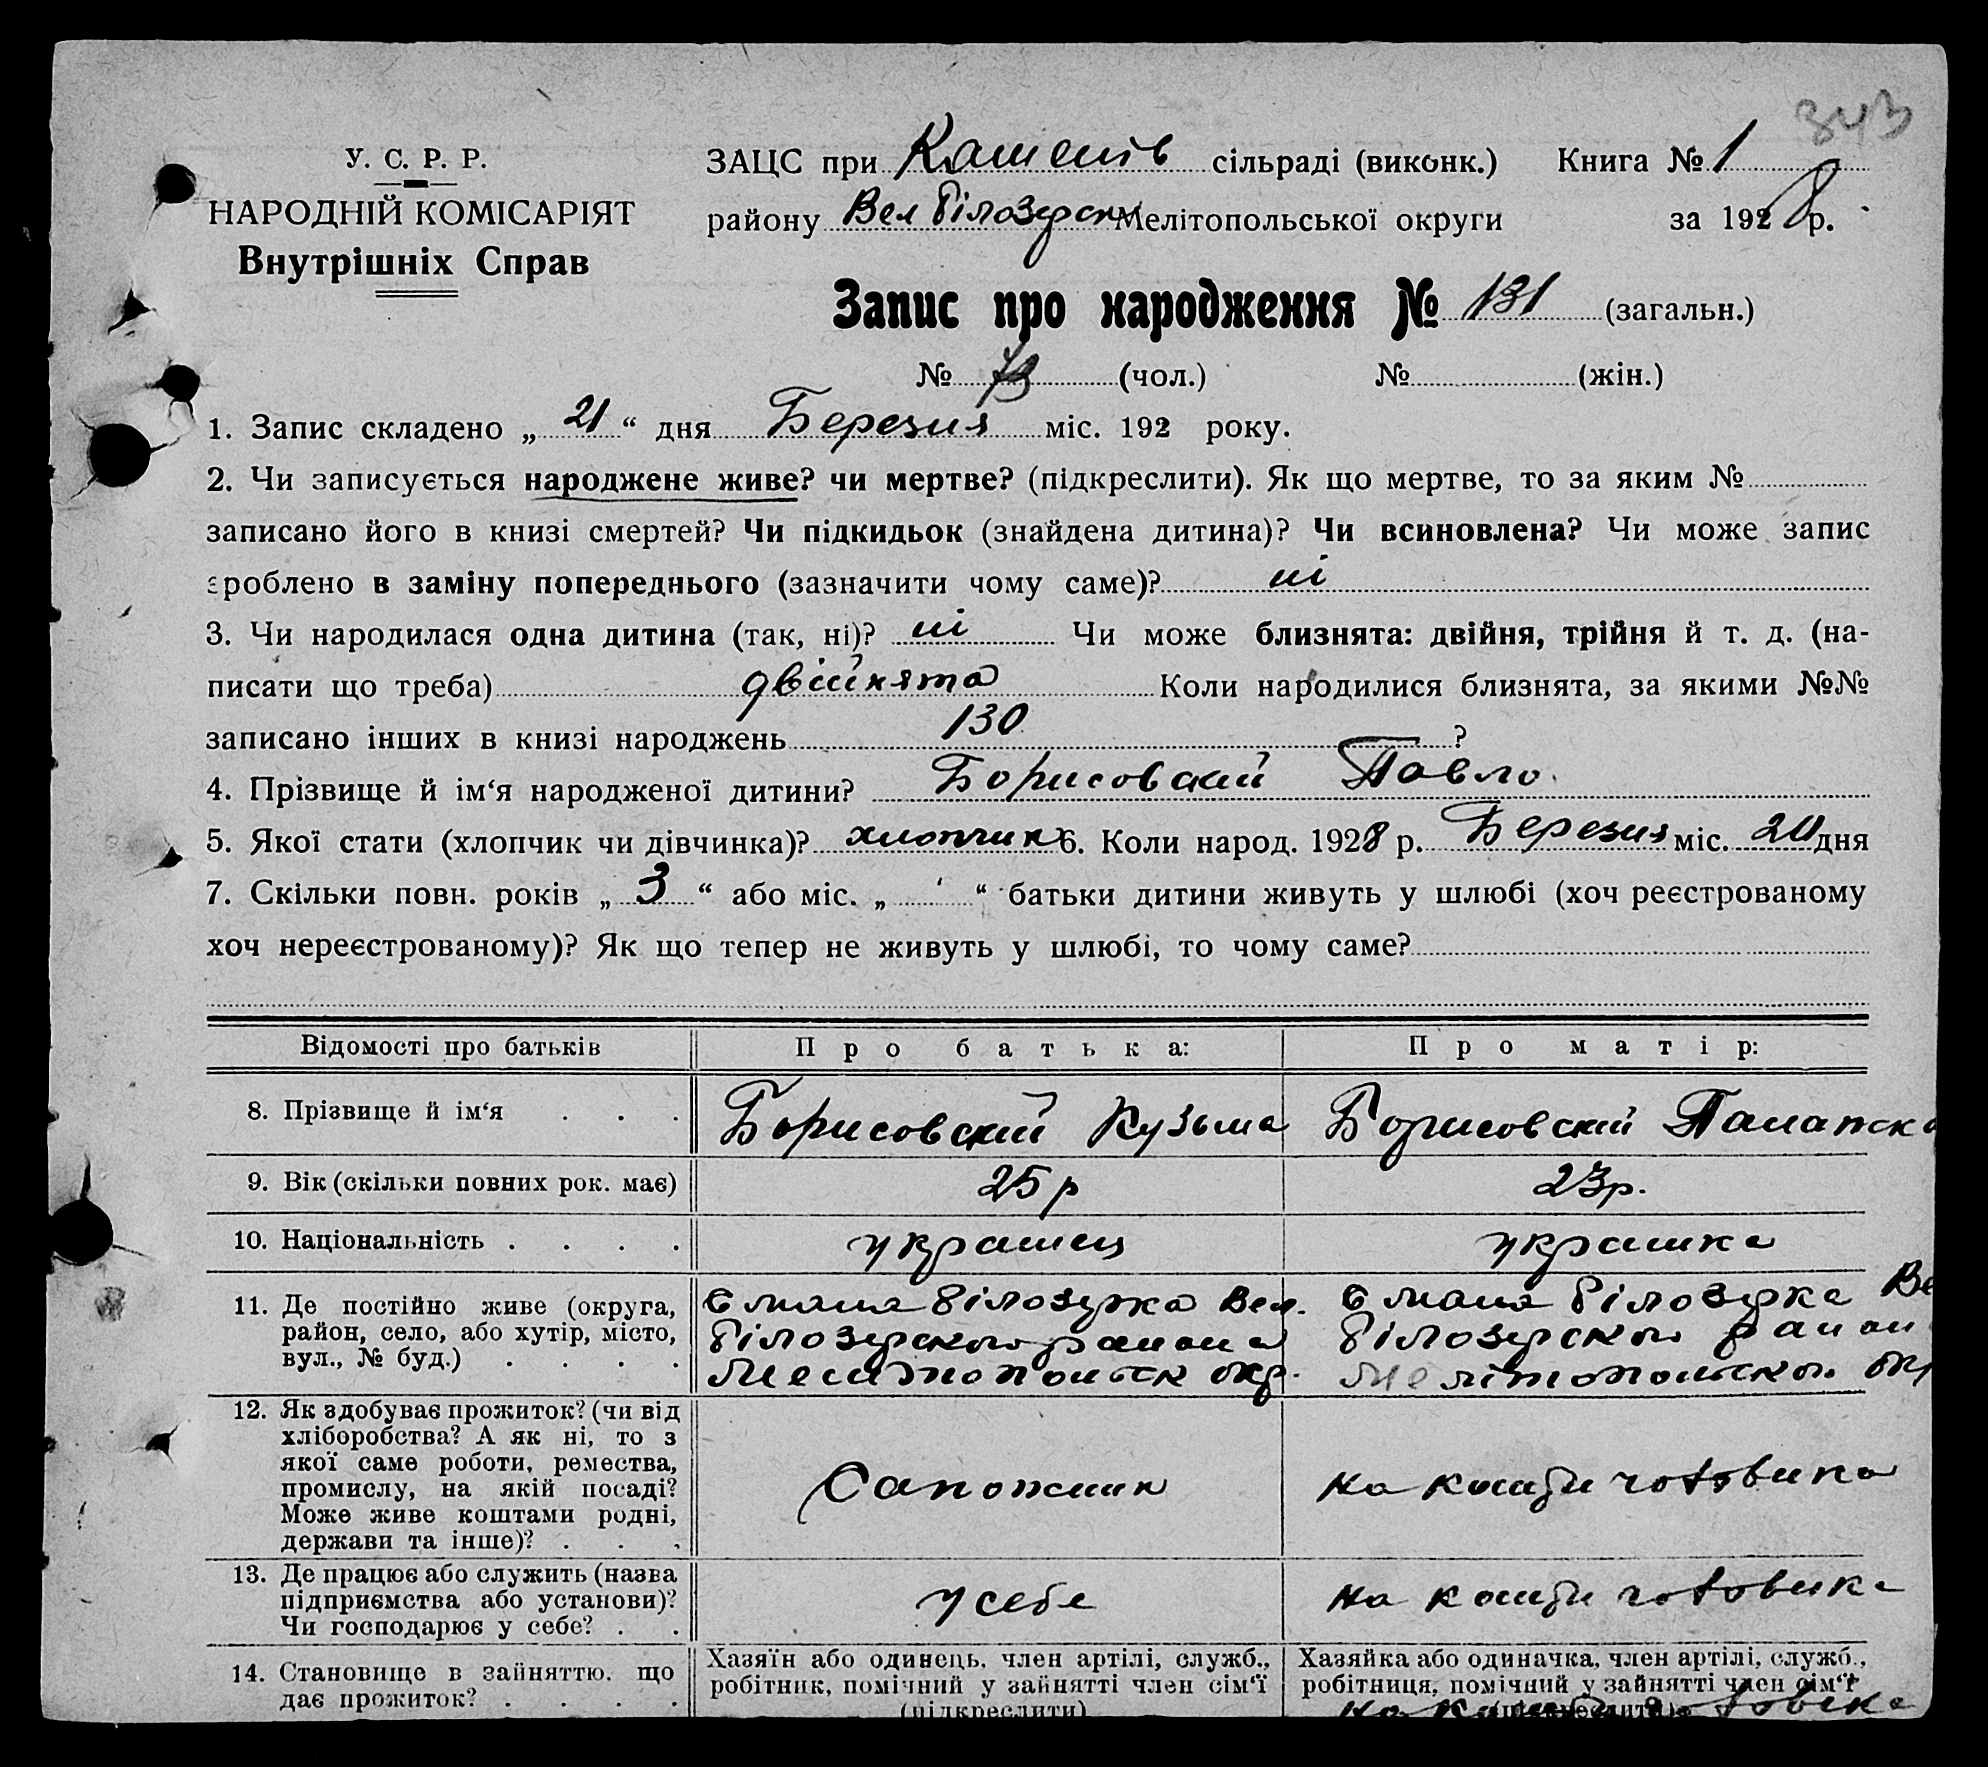 343
У. С. Р. Р.
НАРОДНІЙ КОМІСАРІЯТ
Внутрішніх Справ
ЗАЦС при сільраді (виконк.) Книга № 1
району Вел Білозерськ Мелітопольської округи за 1928 р.
Запис про народження № 131 (загальн.)
№ (чол.) № (жін.)
1. Запис складено „ 21 “ дня Березня міс. 192 року.
2. Чи записується народжене живе? чи мертве? (підкреслити). Як що мертве, то за яким №
записано його в книзі смертей? Чи підкидьок (знайдена дитина)? Чи всиновлена? Чи може запис
зроблено в заміну попереднього (зазначити чому саме)? ні
3. Чи народилася одна дитина (так, ні)? ні Чи може близнята: двійня, трійня й т. д. (на-
писати що треба) двійнята Коли народилися близнята, за якими №№
записано інших в книзі народжень 130 ?
4. Прізвище й ім‘я народженої дитини? Борисовский Павло
5. Якої стати (хлопчик чи дівчинка)? хлопчик 6. Коли народ. 1928 р. Березня міс. 20 дня
7. Скільки повн. років „ 3 “ або міс. „ “ батьки дитини живуть у шлюбі (хоч реєстрованому
хоч нереєстрованому)? Як що тепер не живуть у шлюбі, то чому саме?
Відомості про батьків Про батька: Про матір:
8. Прізвище й ім‘я . . . Борисовский Кузьма Борисовский
9. Вік (скільки повних рок. має) 25 р 23 р.
10. Національність . . . . українец украінка
11. Де постійно живе (округа, район, село, або хутір, місто, вул., № буд.) . . . .
С Мала Білозерка Вел.
Білозерского района
Мелитопольск окр.
С Мала Білозерка Ве
Білозерского район
Мелітопольскои окр
12. Як здобуває прожиток? (чи від
хліборобства? А як ні, то з
якої саме роботи, ремества,
промислу, на якій посаді?
Може живе коштами родні,
держави та інше)? . . .
Сапожник на кошти чоловика
13. Де працює або служить (назва
підприємства або установи)?
Чи господарює у себе? . .
у себе на кошти чоловика
14. Становище в зайняттю, що
дає прожиток? . . . .
Хазяїн або одинець, член артілі, служб.,
робітник, помічний у зайнятті член сім‘ї
(підкреслити)
Хазяйка або одиначка, член артілі, служб.,
робітниця, помічний у зайнятті член сім‘ї
(підкреслити)
на кошти чоловика